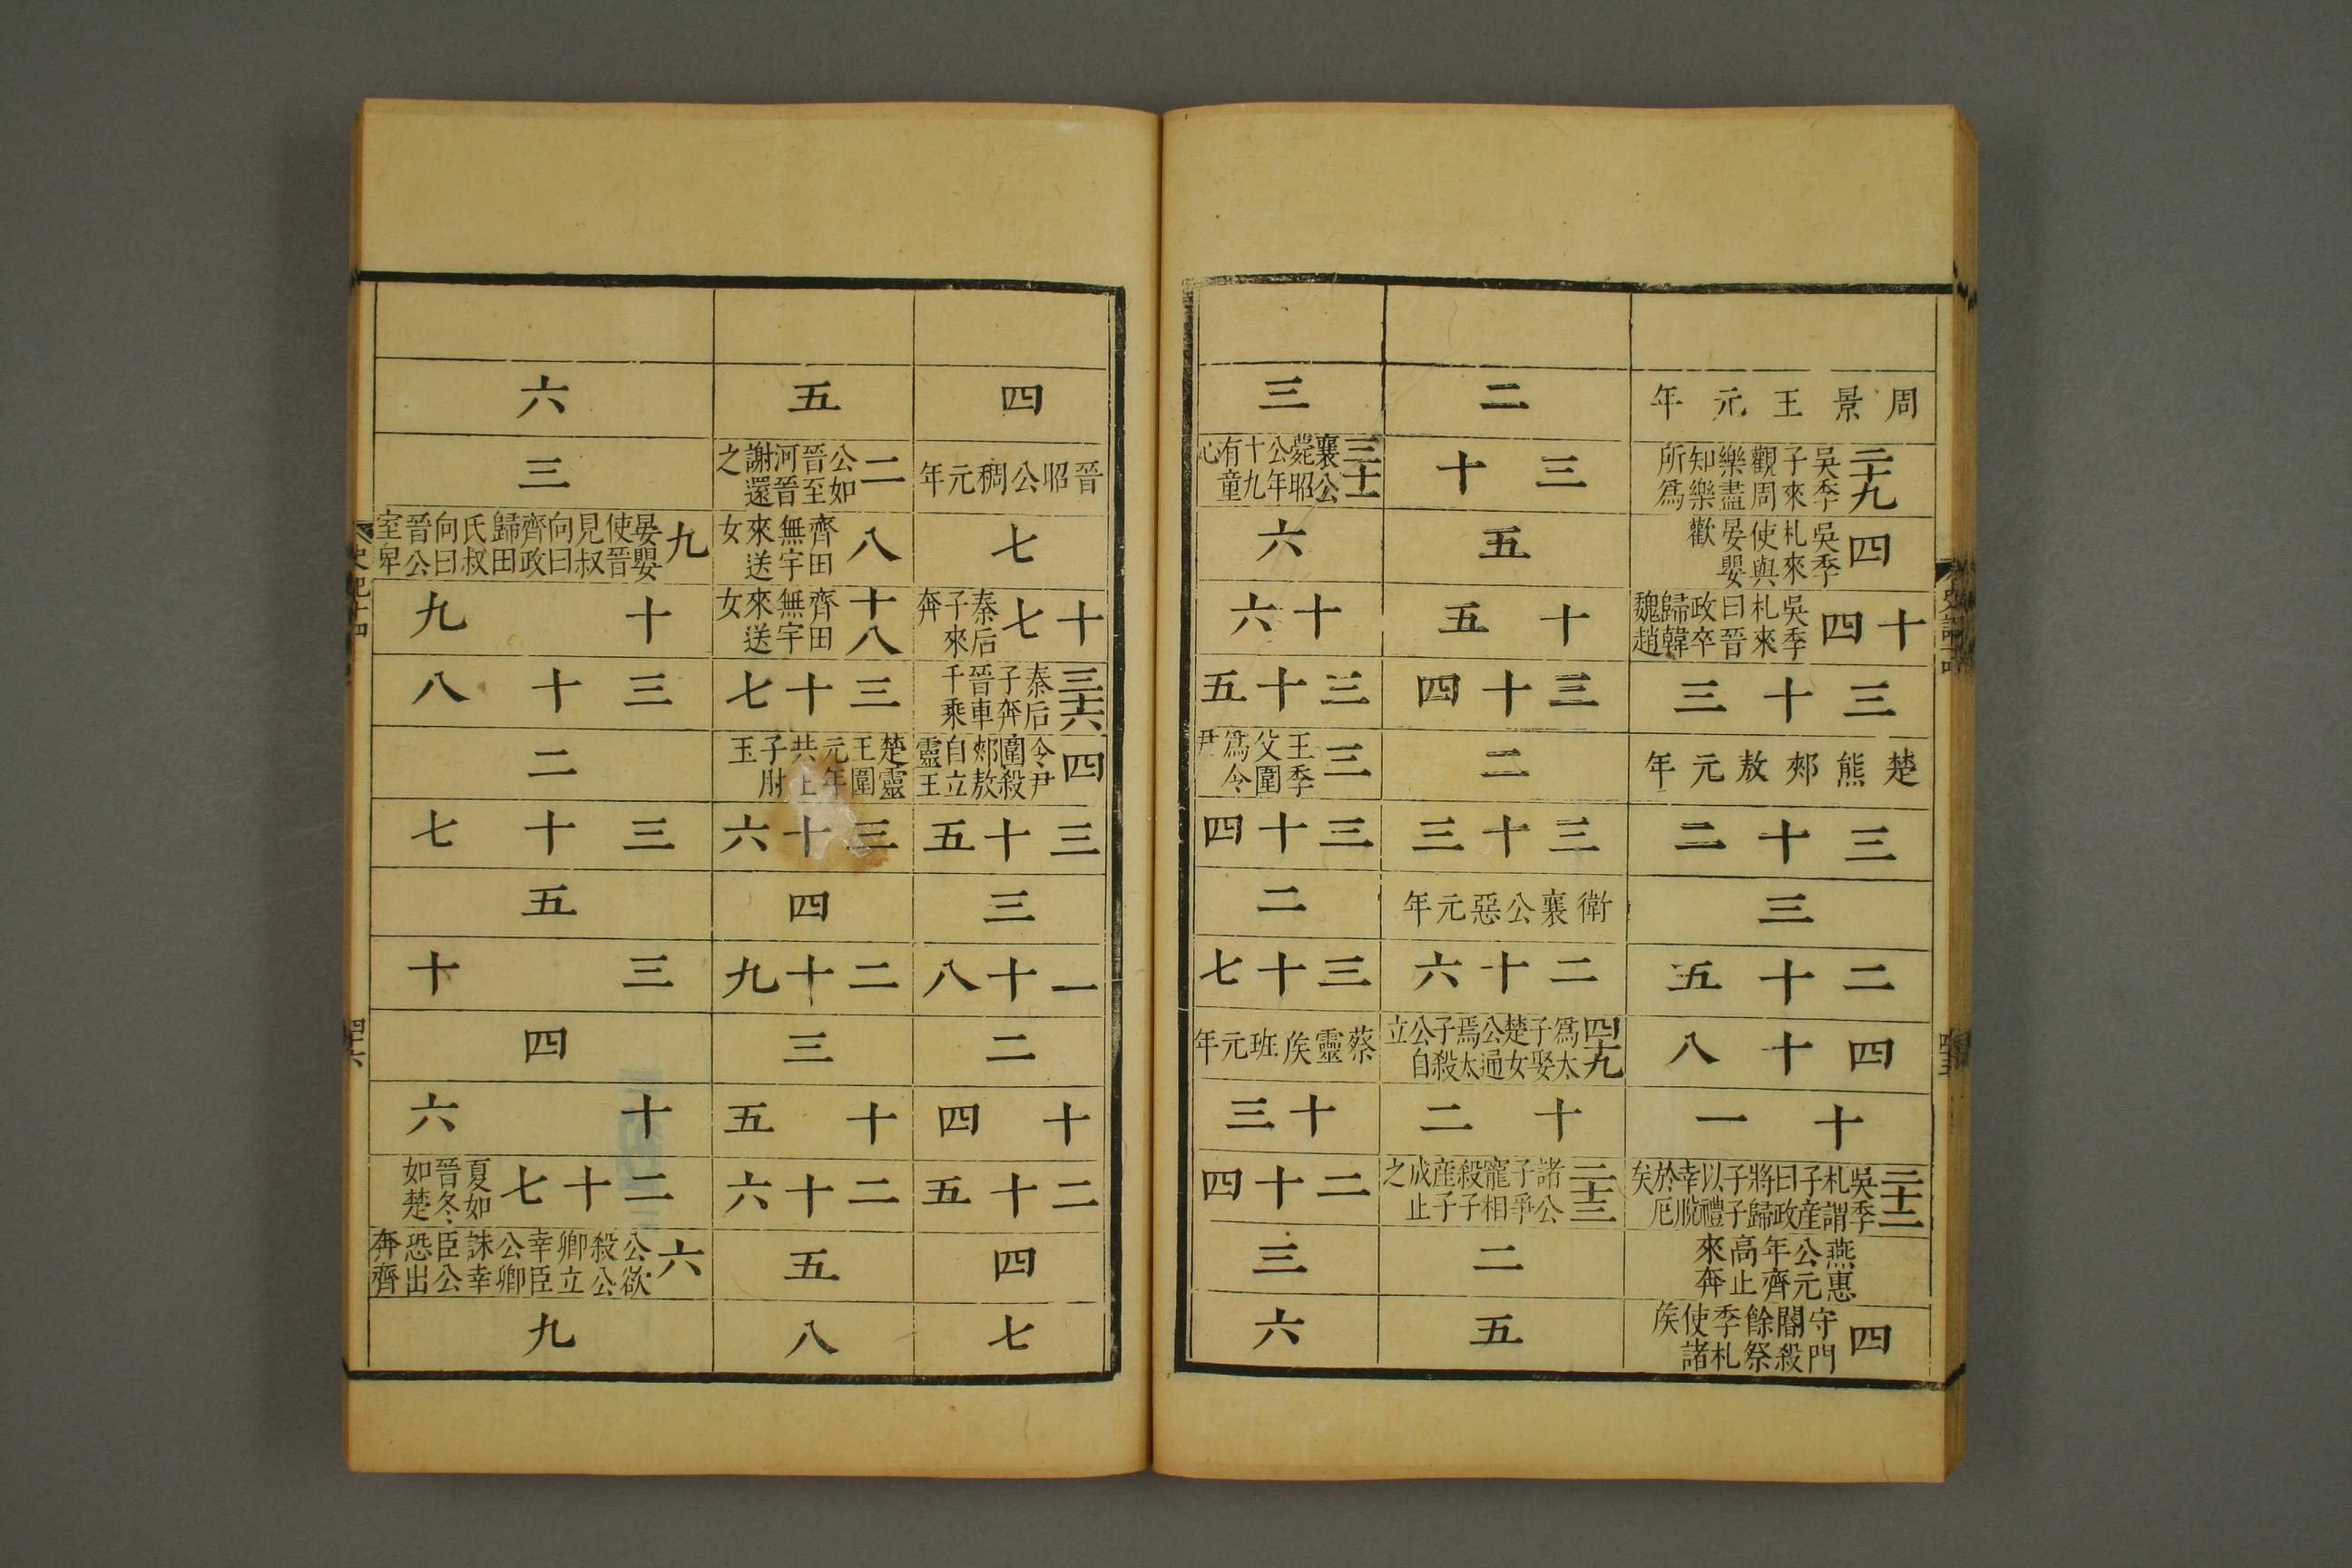 周景王元年
二十九吳季子來觀周樂盡知樂所爲
四吳季札來使與晏嬰歡
十四吳季札來曰晉政卒歸韓魏趙
三十三
楚熊郟敖元年
三十二
三
二十五
四十八
十一
二十二吳季札謂子產曰政將歸子子以禮幸脫於厄矣
燕惠公元年齊高止來奔
四守門閽殺餘祭季札使諸侯
二
三十
五
十五
三十四
二
三十三
衛襄公惡元年
二十六
四十九爲太子娶楚女公通焉太子殺公自立
十二
二十三諸公子爭寵相殺子產子成止之
二
五
三
三十一襄公薨昭公年十九有童心
六
十六
三十五
三王季父圍爲令尹
三十四
二
三十七
蔡靈侯班元年
十三
二十四
三
六
四
晉昭公稠元年
七
十七秦后子來奔
三十六秦后子奔晉車千乘
四令尹圍殺郟敖自立靈王
三十五
三
一十八
二
十四
二十五
四
七
五
二公如晉至河晉謝還之
八齊田無宇來送女
十八齊田無宇來送女
三十七
楚靈王圍元年共王子肘玉
三十六
四
二十九
三
十五
二十六
五
八
六
三
九晏嬰使晉見叔向曰齊政歸田氏叔向曰晉公室卑
十九
三十八
二
三十七
五
三十
四
十六
二十七夏如晉冬如楚
六公欲殺公卿立幸臣公卿誅幸臣公恐出奔齊
九
史記十四
四十六